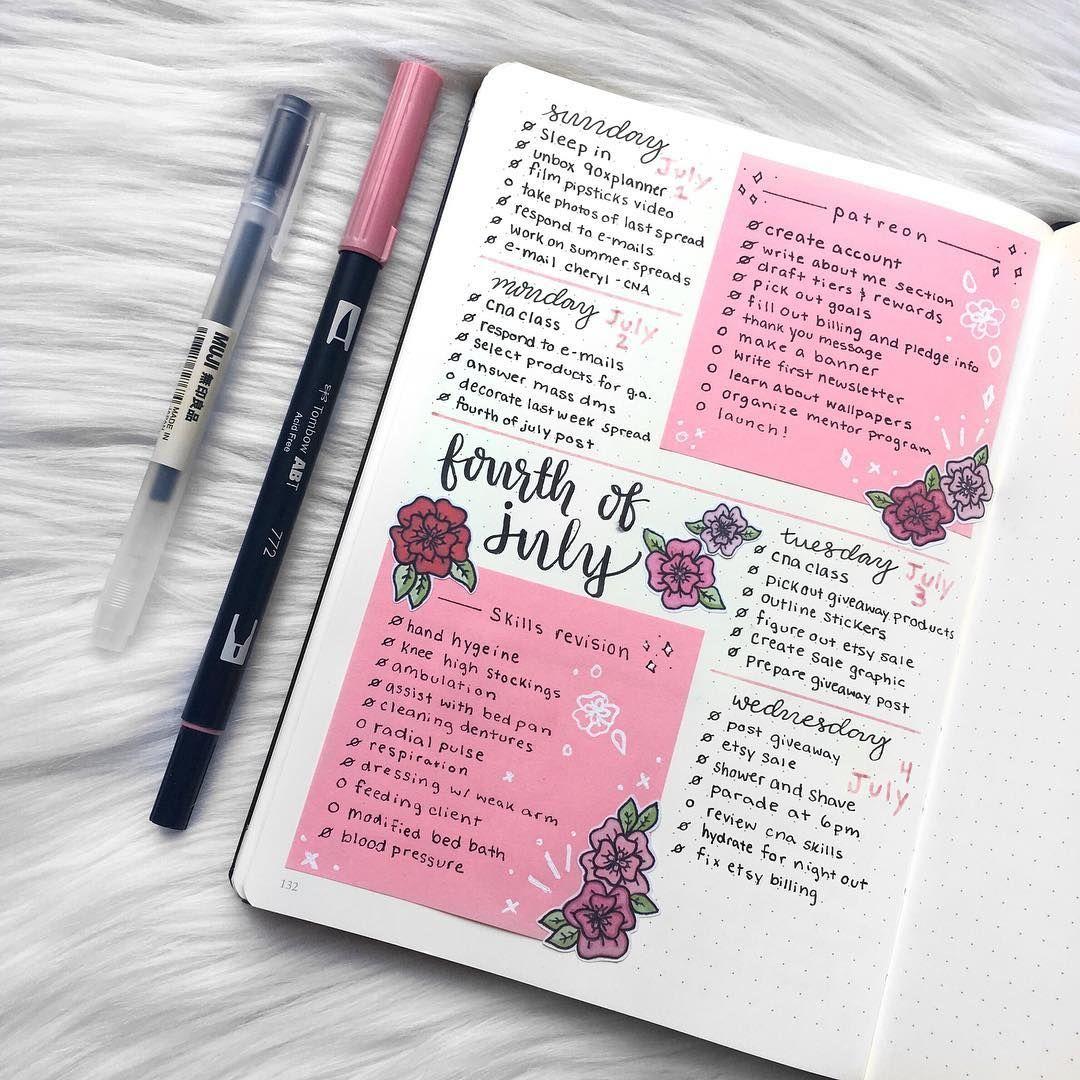 MUJI 無印良品
MADE IN
Tombow ABT
Acid Free
772
sunday
July
1
sleep in
unbox 90xplanner
film pipsticks video
take photos of last spread
respond to e-mails
work on summer spreads
e-mail cheryl - CNA
monday
July
2
cna class
respond to e-mails
select products for g.a.
answer mass dms
decorate last week spread
fourth of july post
patreon
create account
write about me section
draft tiers & rewards
pick out goals
fill out billing and pledge info
thank you message
make a banner
write first newsletter
learn about wallpapers
organize mentor program
launch!
fourth of
july
Skills revision
hand hygeine
knee high stockings
ambulation
assist with bed pan
cleaning dentures
radial pulse
respiration
dressing w/ weak arm
feeding client
modified bed bath
blood pressure
tuesday
July
3
cna class
pick out giveaway products
outline stickers
figure out etsy sale
create sale graphic
prepare giveaway post
wednesday
4
July
post giveaway
etsy sale
shower and shave
parade at 6pm
review cna skills
hydrate for night out
fix etsy billing
132